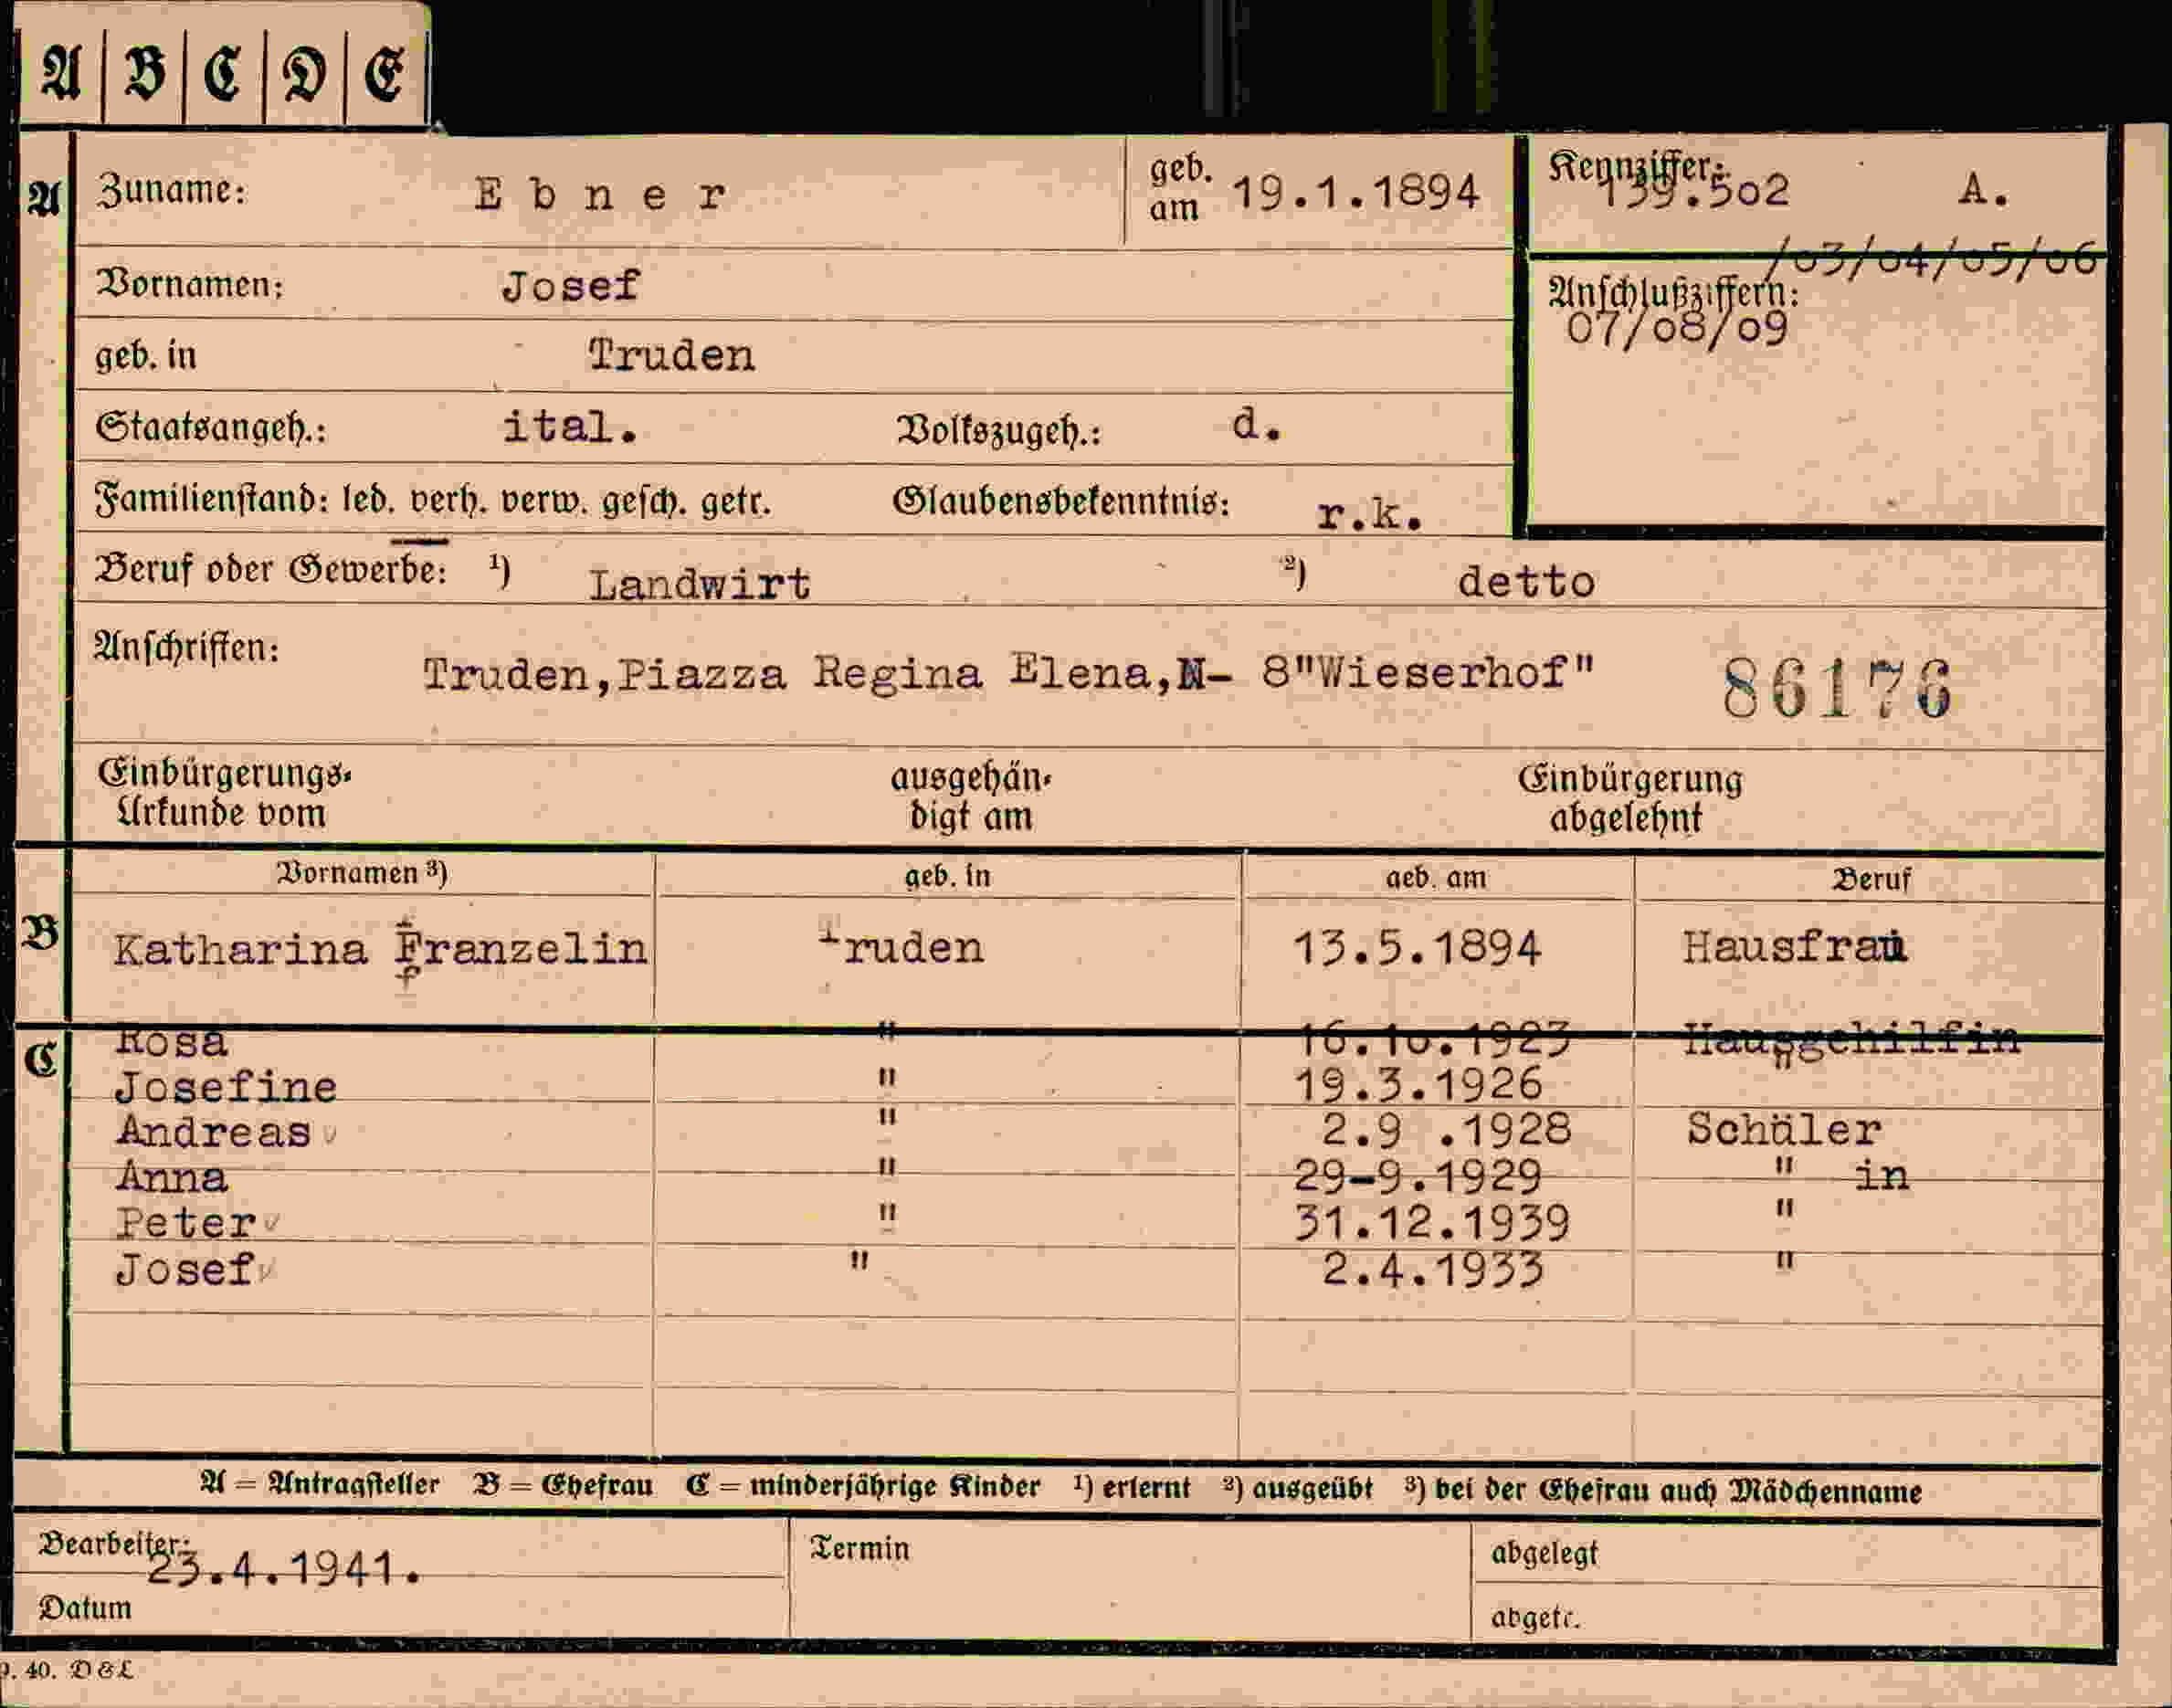 A B C D E
A Zuname: Ebner geb. am 19.1.1894 Kennziffer: 139.502 A.
/03/04/05/06
Vornamen: Josef Anschlußziffern:
07/08/09
geb. in Truden
Staatsangeh.: ital. Volkszugeh.: d.
Familienstand: led. verh. verw. gesch. getr. Glaubensbekenntnis: r.k.
Beruf oder Gewerbe: 1) Landwirt 2) detto
Anschriften: Truden,Piazza Regina Elena,N- 8"Wieserhof" 86176
Einbürgerungs-Urkunde vom ausgehändigt am Einbürgerung abgelehnt
Vornamen 3) geb. in geb. am Beruf
B Katharina Franzelin Truden 13.5.1894 Hausfrau
C Rosa " 16.10.1923 Hausgehilfin
Josefine " 19.3.1926 "
Andreas " 2.9 .1928 Schüler
Anna " 29-9.1929 " in
Peter " 31.12.1939 "
Josef " 2.4.1933 "
A = Antragsteller B = Ehefrau C = minderjährige Kinder 1) erlernt 2) ausgeübt 3) bei der Ehefrau auch Mädchenname
Bearbeiter: 23.4.1941. Termin abgelegt
Datum abgetr.
40. D&L